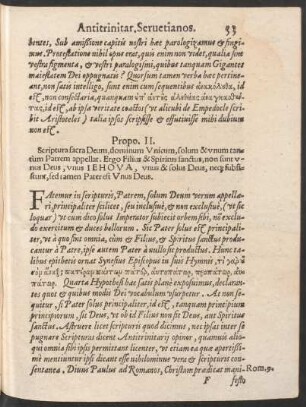 Antitrinitar, Seruetianos. 53
bentes, Sub amissione capitis nostri hæc paralogizamus & fingi-
mus. Protestatione nihil opus erat, quis enim non videt, qualia sint
vestra figmenta, & vestri paralogismi, quibus tanquam Gigantes
maiestatem Dei oppugnatis? Quorsum tamen verba hæc pertine-
ant, non satis intelligo, sunt enim cum sequentibus
id est, non consectaria, quanquam
id est, ab ipsa veritate coactos (vt alicubi de Empedocle scri-
bit Aristoteles) talia ipsos scripsisse & effutiuisse mihi dubium
non est.
Propo. II.
Scriptura sacra Deum, dominum Vnicum, solum & vnum tan-
tum Patrem appellat. Ergo Filius & Spiritus sanctus, non sunt v-
nus Deus, vnius IEHOVA, vnius & solus Deus, neq; subsi-
stunt, sed tantum Pater est Vnus Deus.
FAtemur in scripturis, Patrem, solum Deum verum appella-
ri principaliter scilicet, seu inclusiuè, & non exclusiuè, (vt sic
loquar) vt cum dico solus Imperator subiecit orbem sibi, nō exclu-
do exercitum & duces bellorum. Sic Pater solus est principali-
ter, vt à quo sint omnia, cùm & Filius, & Spiritus sanctus produ-
cantur à Patre, ipse autem Pater à nullo sit productus. Hunc ta-
libus epithetis ornat Synesius Episcopus in suis Hymnis,
Quarta Hypothesi hæc satis planè exposuimus, declaran-
tes quot & quibus modis Dei vocabulum vsurpetur. Ac quomo-
do, si Pater solus principaliter, id est, tanquam principium
principiorum, sit Deus, vt ob id Filius non sit Deus, aut Spiritus
sanctus. Astruere licet scripturis quod dicimus, nec ipsas inter se
pugnare Scripturas dicent Antitrinitarij opinor, quamuis
aliquot omnia sint caliginosa. At ne cum ea quæ apertissi-
mè meminerunt ipsi dicant esse nihilominus vera & scripturis con-
sentanea. Diuus Paulus ad Romanos, Christum prædicat mani- Rom. 9.
F festo